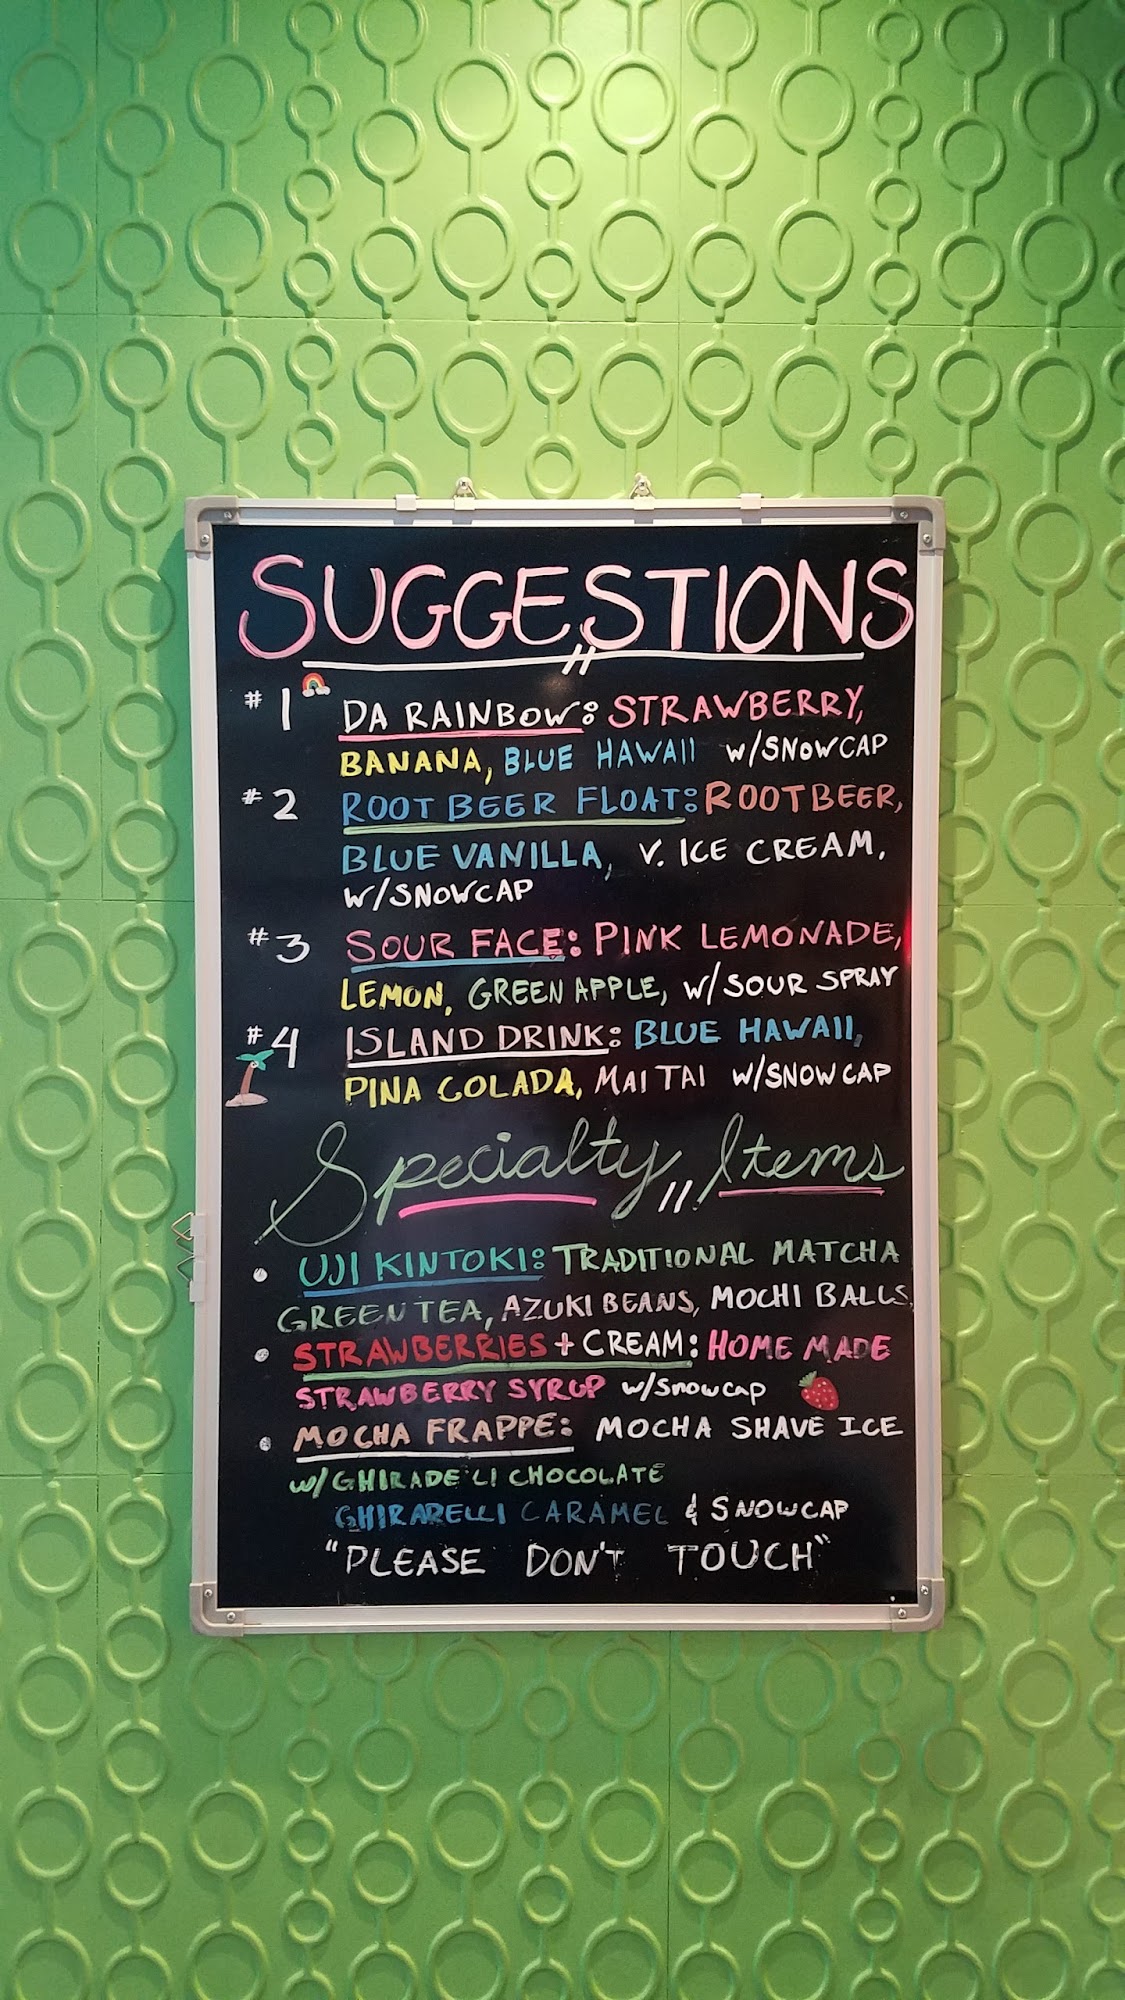 SUGGESTIONS
#1 DA RAINBOW: STRAWBERRY,
BANANA, BLUE HAWAII W/SNOWCAP
#2 ROOT BEER FLOAT: ROOTBEER,
BLUE VANILLA, V. ICE CREAM,
W/SNOWCAP
#3 SOUR FACE: PINK LEMONADE,
LEMON, GREEN APPLE, W/SOUR SPRAY
#4 ISLAND DRINK: BLUE HAWAII,
PINA COLADA, MAI TAI W/SNOWCAP
Specialty Items
• UJI KINTOKI: TRADITIONAL MATCHA
GREEN TEA, AZUKI BEANS, MOCHI BALLS
• STRAWBERRIES + CREAM: HOME MADE
STRAWBERRY SYRUP w/snowcap
• MOCHA FRAPPE: MOCHA SHAVE ICE
W/GHIRADE LI CHOCOLATE
GHIRARELLI CARAMEL & SNOWCAP
"PLEASE DON'T TOUCH"